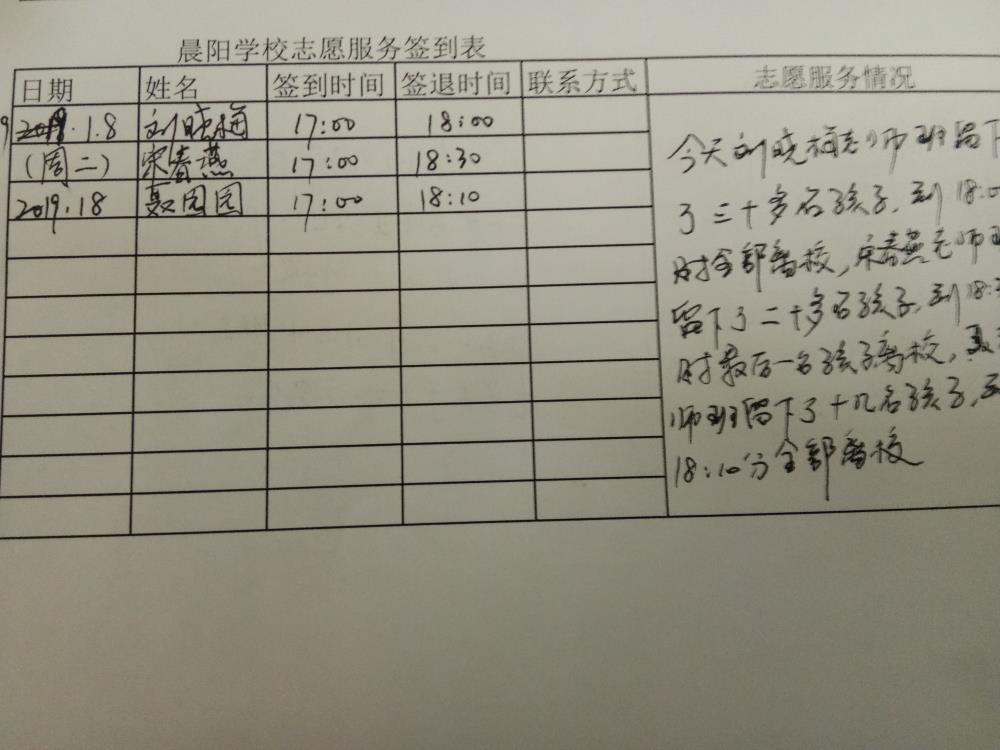 晨阳学校志愿服务签到表
日期 姓名 签到时间 签退时间 联系方式 志愿服务情况
2019.1.8 刘晓梅 17:00 18:00
(周二) 宋春燕 17:00 18:30
2019.18 聂园园 17:00 18:10
今天刘晓梅老师班留下
了三十多名孩子,到18:00
时全部离校,宋春燕老师班
留下了二十多名孩子,到18:3
时最后一名孩子离校,聂
师班留下了十几名孩子,
18:10分全部离校